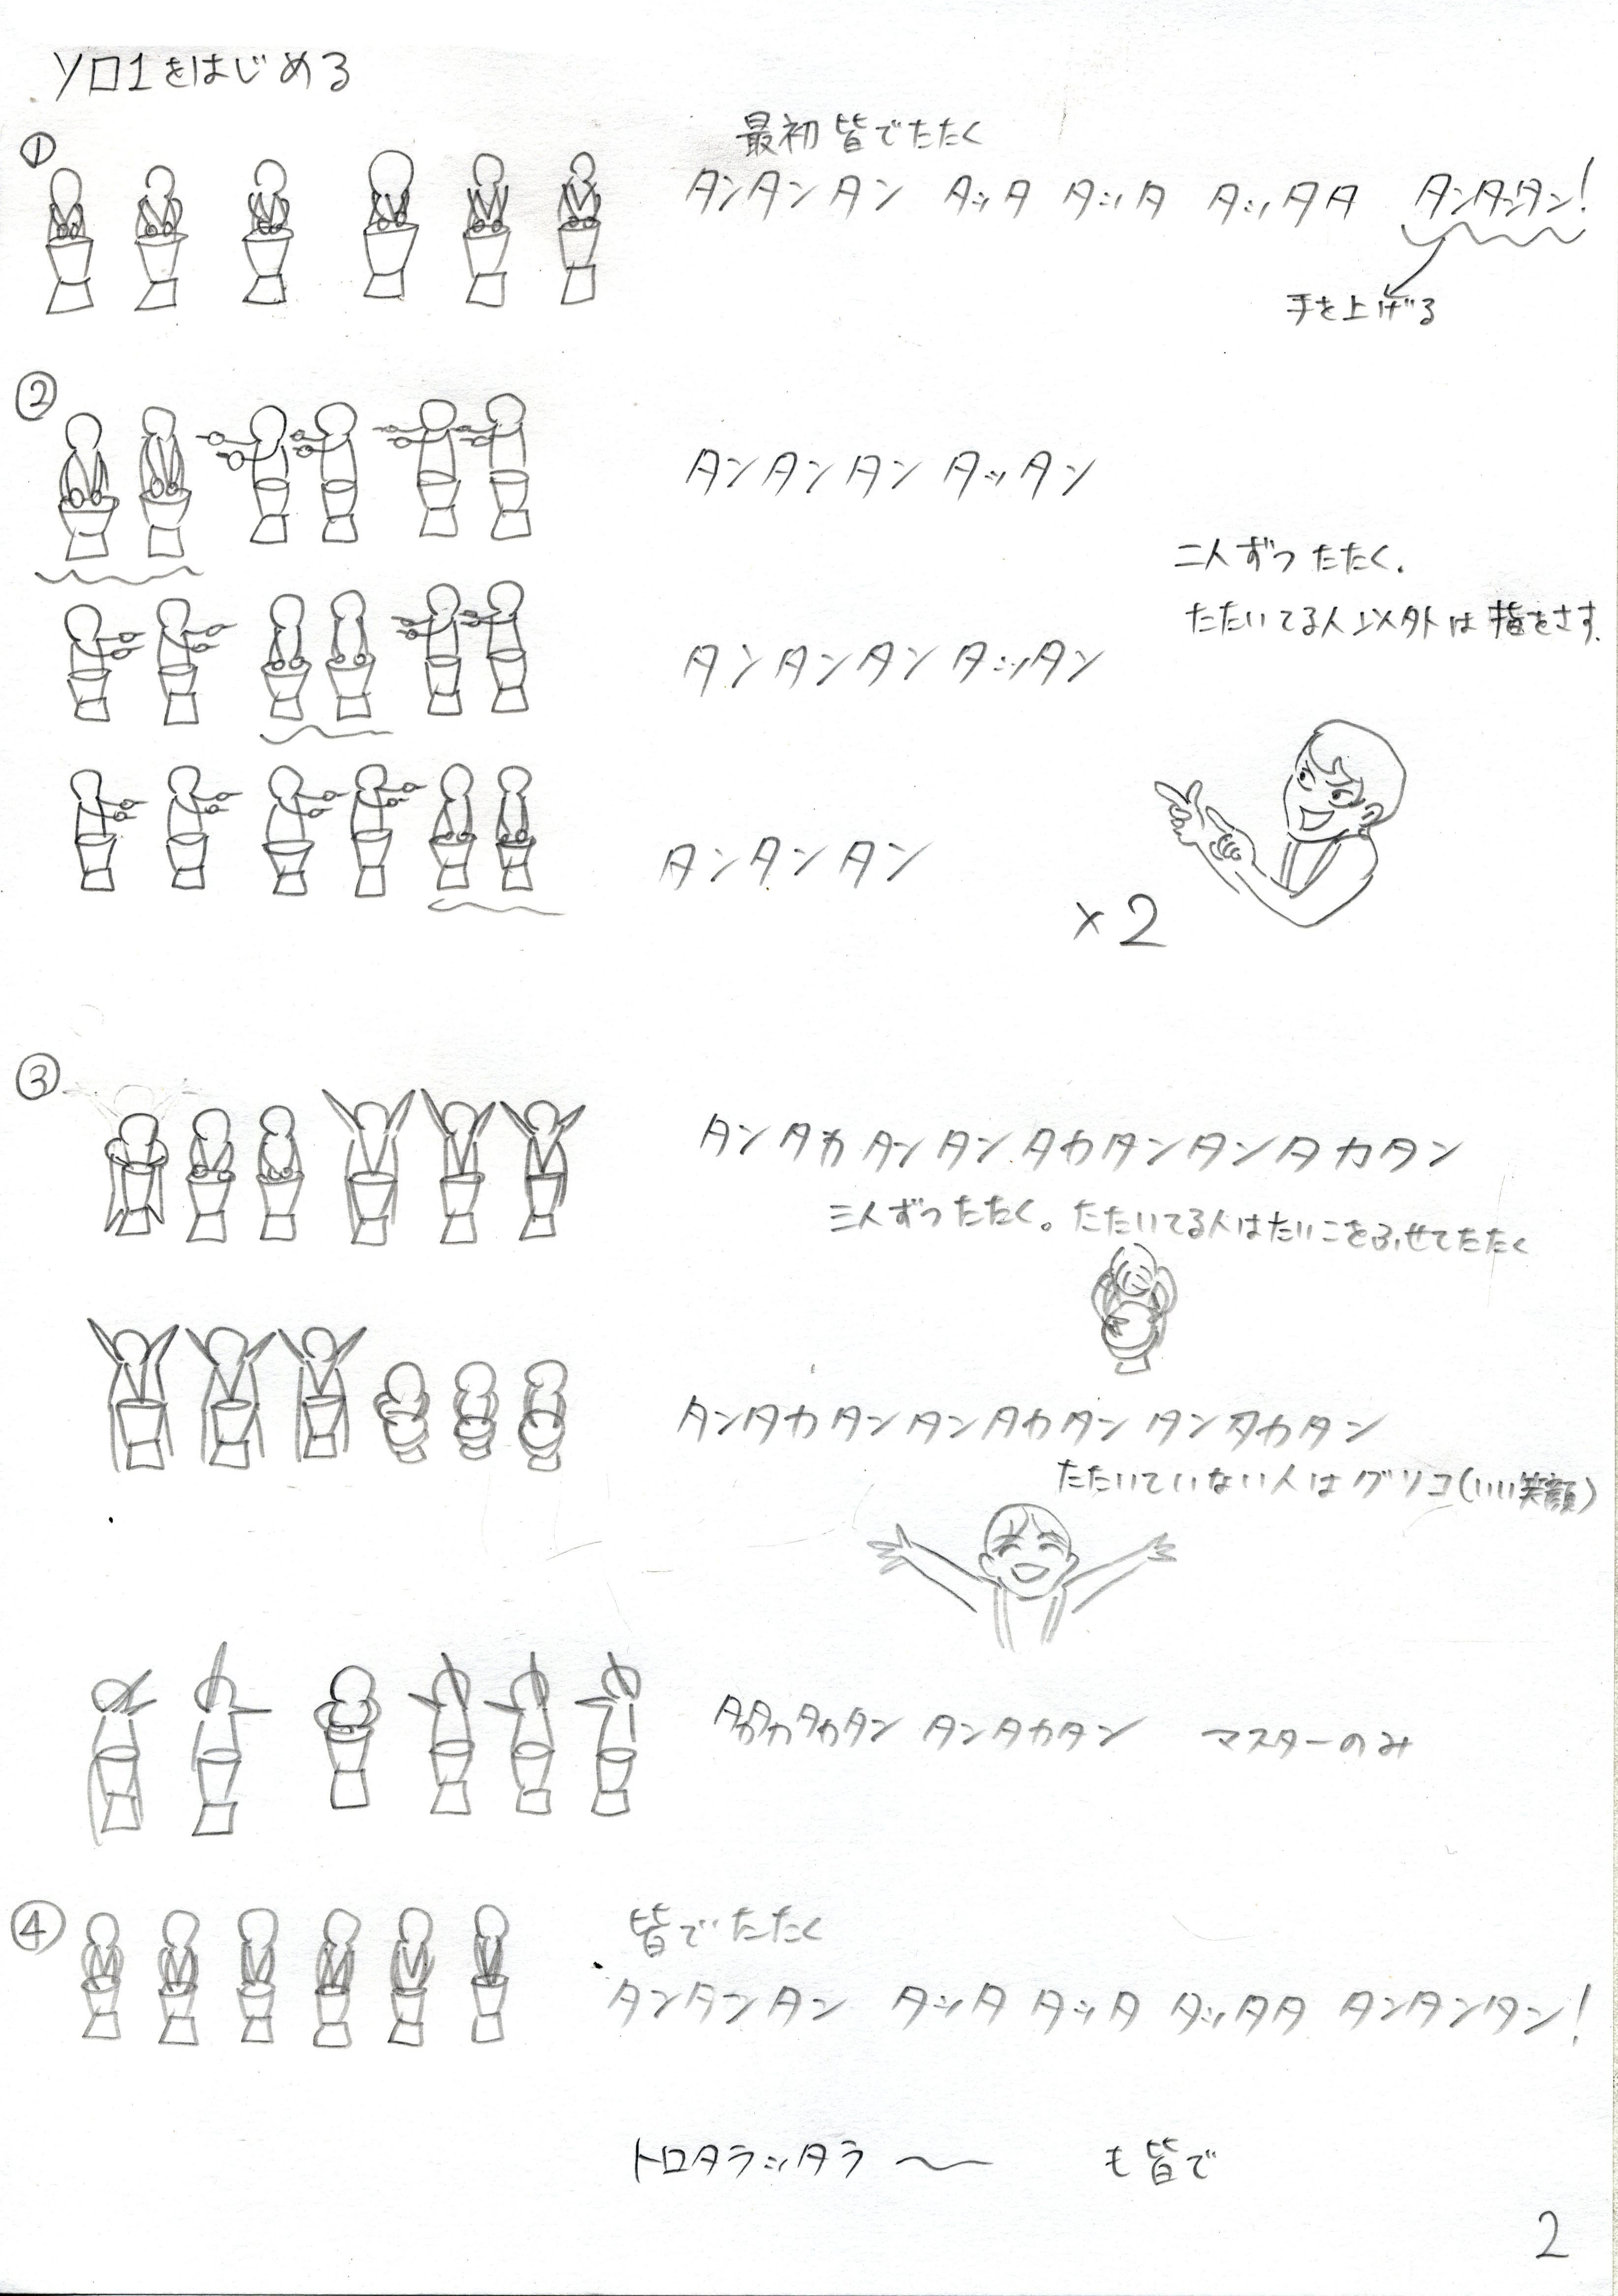 ソロ1をはじめる
①
最初 皆でたたく
タンタンタン タッタ タッタ タッタタ タンタンタン!
手を上げる
②
タンタンタン タッタン
二人ずつ たたく.
たたいてる人以外は指をさす.
タンタンタン タッタン
タンタンタン
×2
③
タンタカタンタンタカタンタンタカタン
三人ずつ たたく。たたいてる人はたいこをふせてたたく
タンタカタンタンタカタン タンタカタン
たたいていない人は グリコ(いい笑顔)
タカタカタカタン タンタカタン マスターのみ
④
皆でたたく
タンタンタン タッタ タッタ タッタタ タンタンタン!
トロタラッタラ 〜 も皆で
2